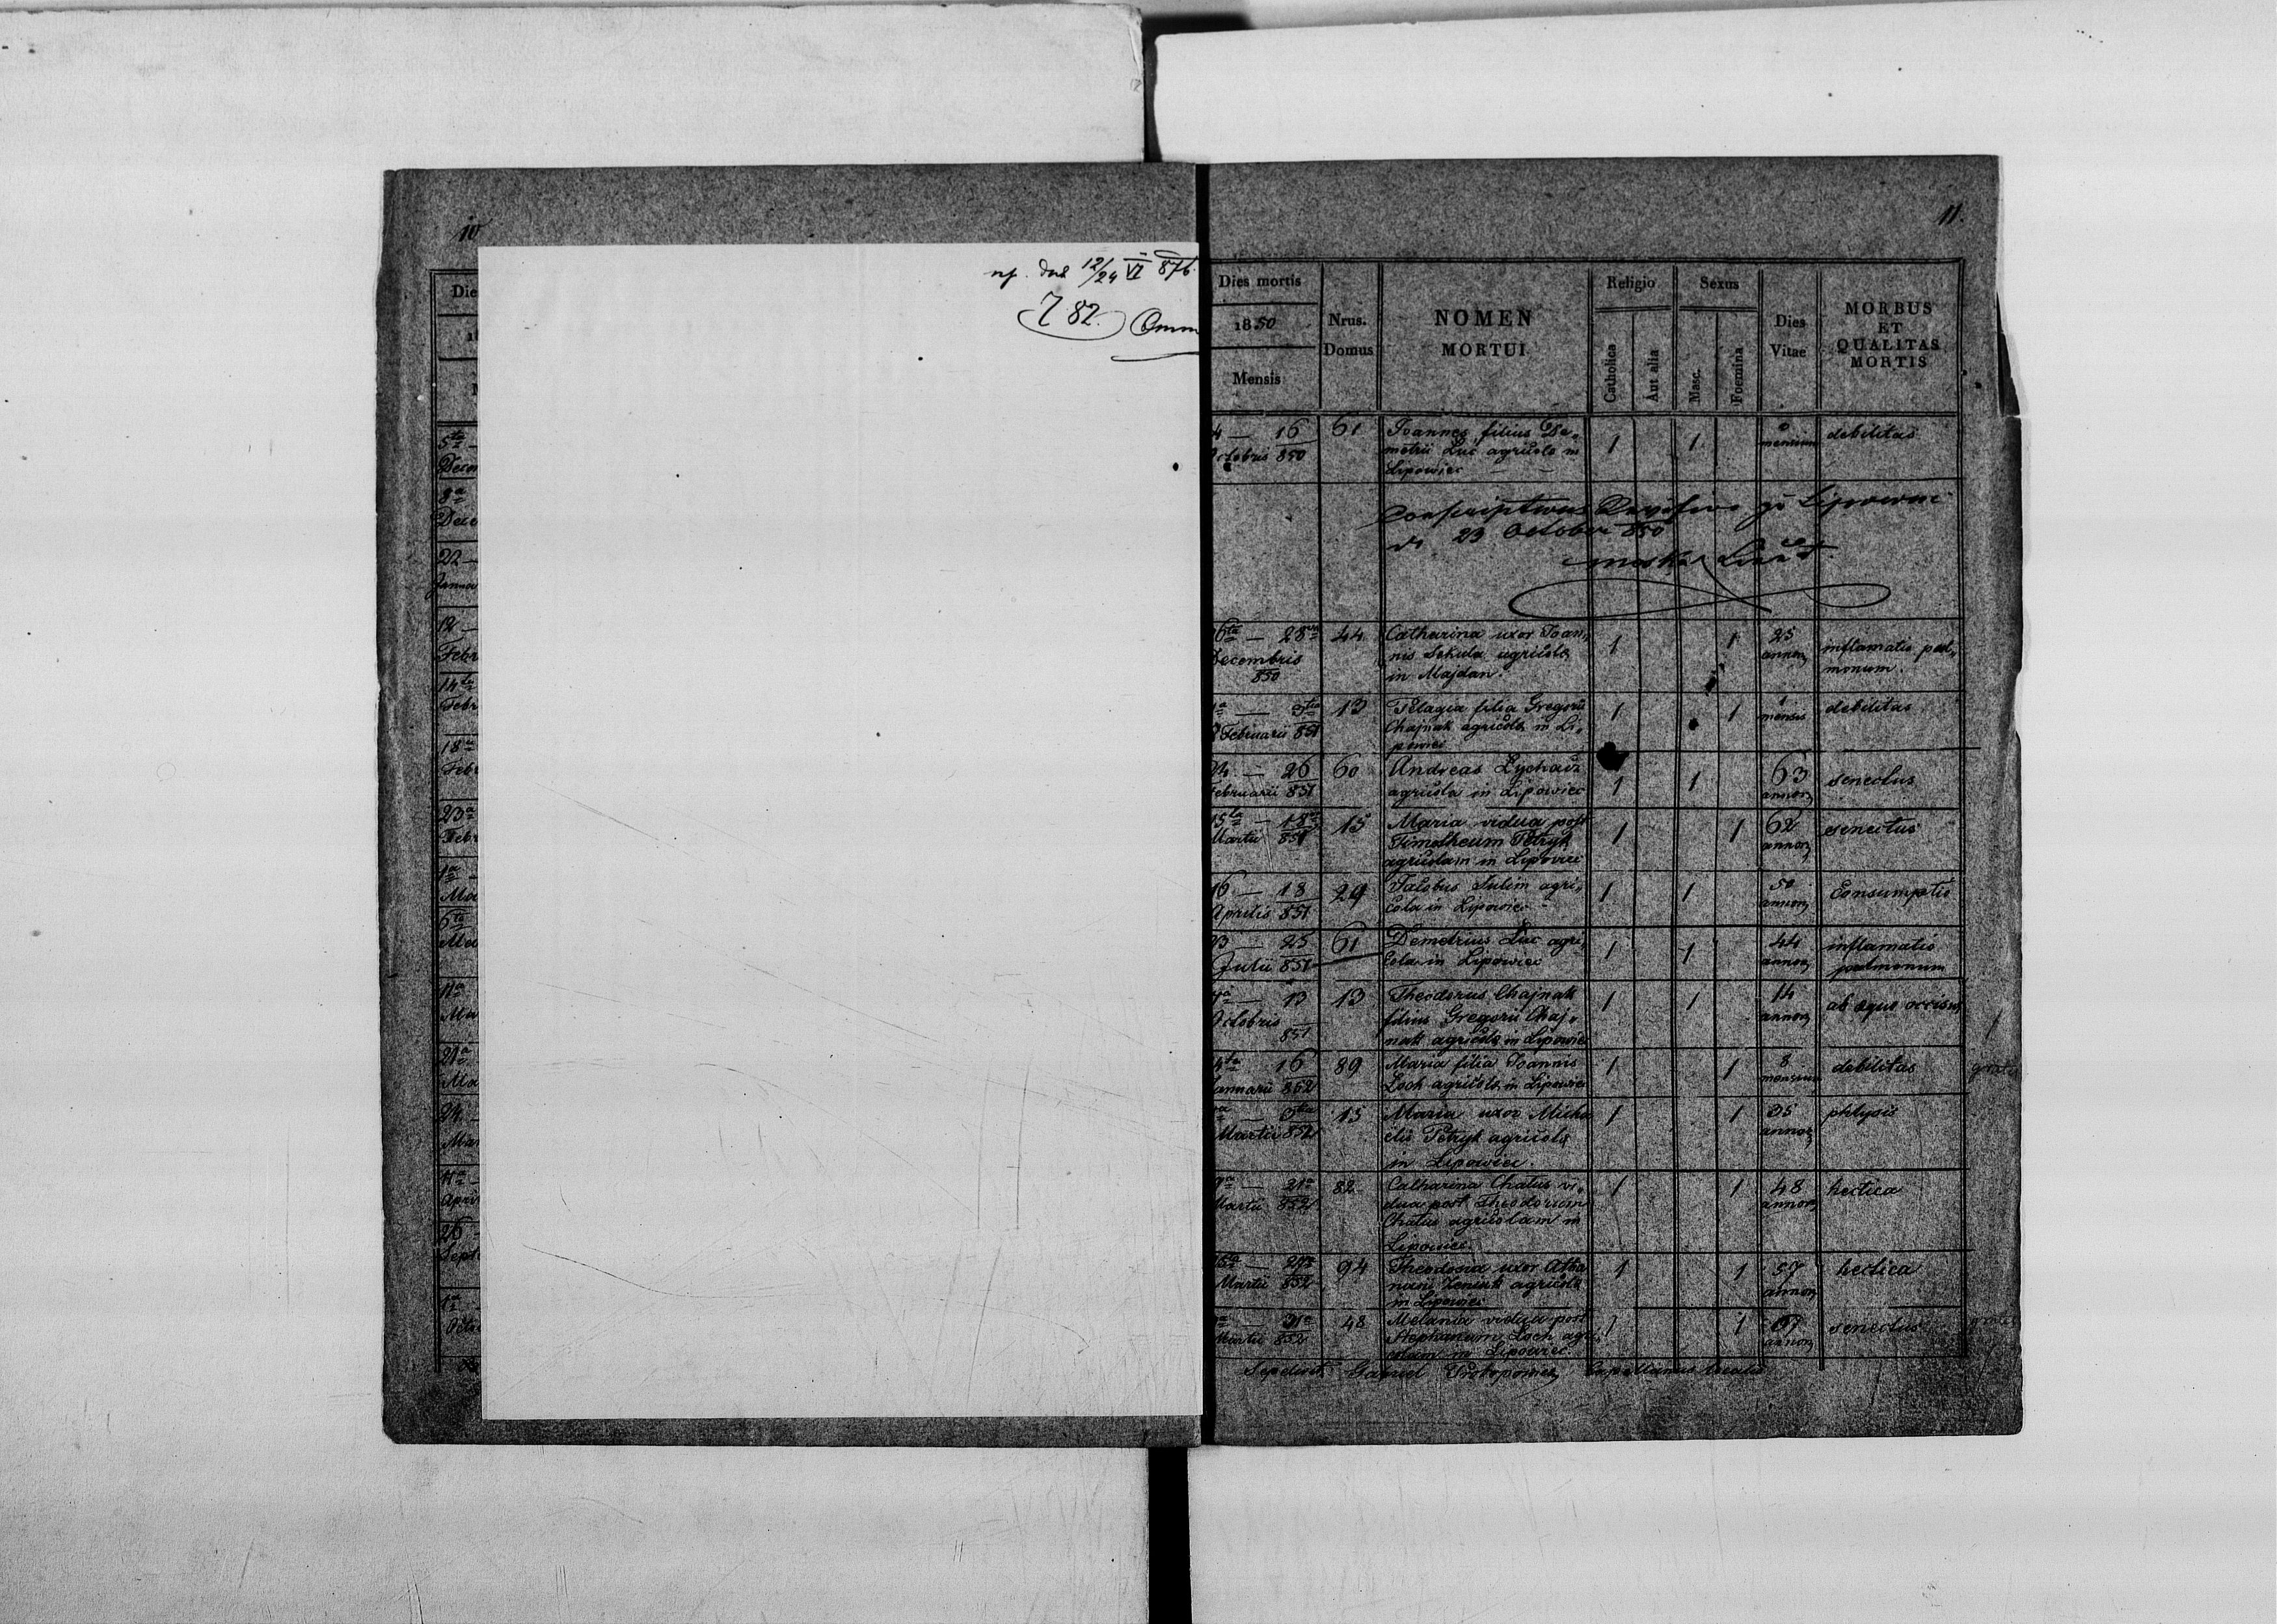 10
Die
18
5ta —
Decem
8a
Dece
22 —
Janua
12 —
Febr
14ta
Febr
18a
Febr
23a
Febr
1a —
Ma
6ta
Ma
11a
Ma
21a
Ma
24 —
Mar
11a —
Apri
26 —
Sept
1a —
12/24 VI 876.
782.
11.
Dies mortis
1850
Mensis
Nrus.
Domus
NOMEN
MORTUI
Religio
Catholica
Aut alia
Sexus
Masc.
Foemina
Dies
Vitae
MORBUS
ET
QUALITAS
MORTIS
4 — 16
ctobris 850
61
Joannes filius De-
metrii Luc agricola in
Lipowiec
1
1
mensium
debilitas
23 October 850
6ta — 28va
Decembris
850
44
Catharina uxor Joan-
nis Sekula agricola
in Majdan.
1
1
25
annor
inflamatio pul-
monum.
1a — 3tia
Februarii 851
13
Pelagia filia Gregorii
Chajnak agricola in Li-
powiec
1
1
1
mensis
debilitas
24 — 26
Februarii 851
60
Andreas
agricola in Lipowiec
1
1
63
annor
senectus
15ta — 18va
Martii 851
15
Maria vidua post
Timotheum Petryk
agricolam in Lipowiec
1
1
62
annor
senectus
16 — 18
Aprilis 851
29
Jacobus Sulim agri-
cola in Lipowiec
1
1
50
annor
Consumptio
23 — 25
Julii 851
61
Demetrius Luc agri-
cola in Lipowiec
1
1
44
annor
inflamatio
pulmonum
13
Octobris
851
13
Theodorus Chajnak
filius Gregorii Chaj-
nak agricola in Lipowiec
1
1
14
annor
ab equo occisus
4ta 16
Januarii 852
89
Maria filia Joannis
Loch agricola in Lipowiec
1
1
8
mensium
debilitas
gratis
3tia
Martii 852
15
Maria uxor Micha
elis Petryk agricola
in Lipowiec.
1
1
35
annor
phtysis
21a
Martii 852
82
Catharina Chatus vi-
dua post Theodorum
Chatus agricolam in
Lipowiec.
1
1
48
annor
hectica
Martii 852
94
Theodosia uxor Atha
nasii Zeniuk agricola
in Lipowiec
1
1
57
annor
hectica
Martii 852
48
Melania vidua post
Stephanum Loch agri-
colam in Lipowiec.
1
1
67
annor
senectus
Sepelivit Gabriel Prokopowicz Capellanus localis